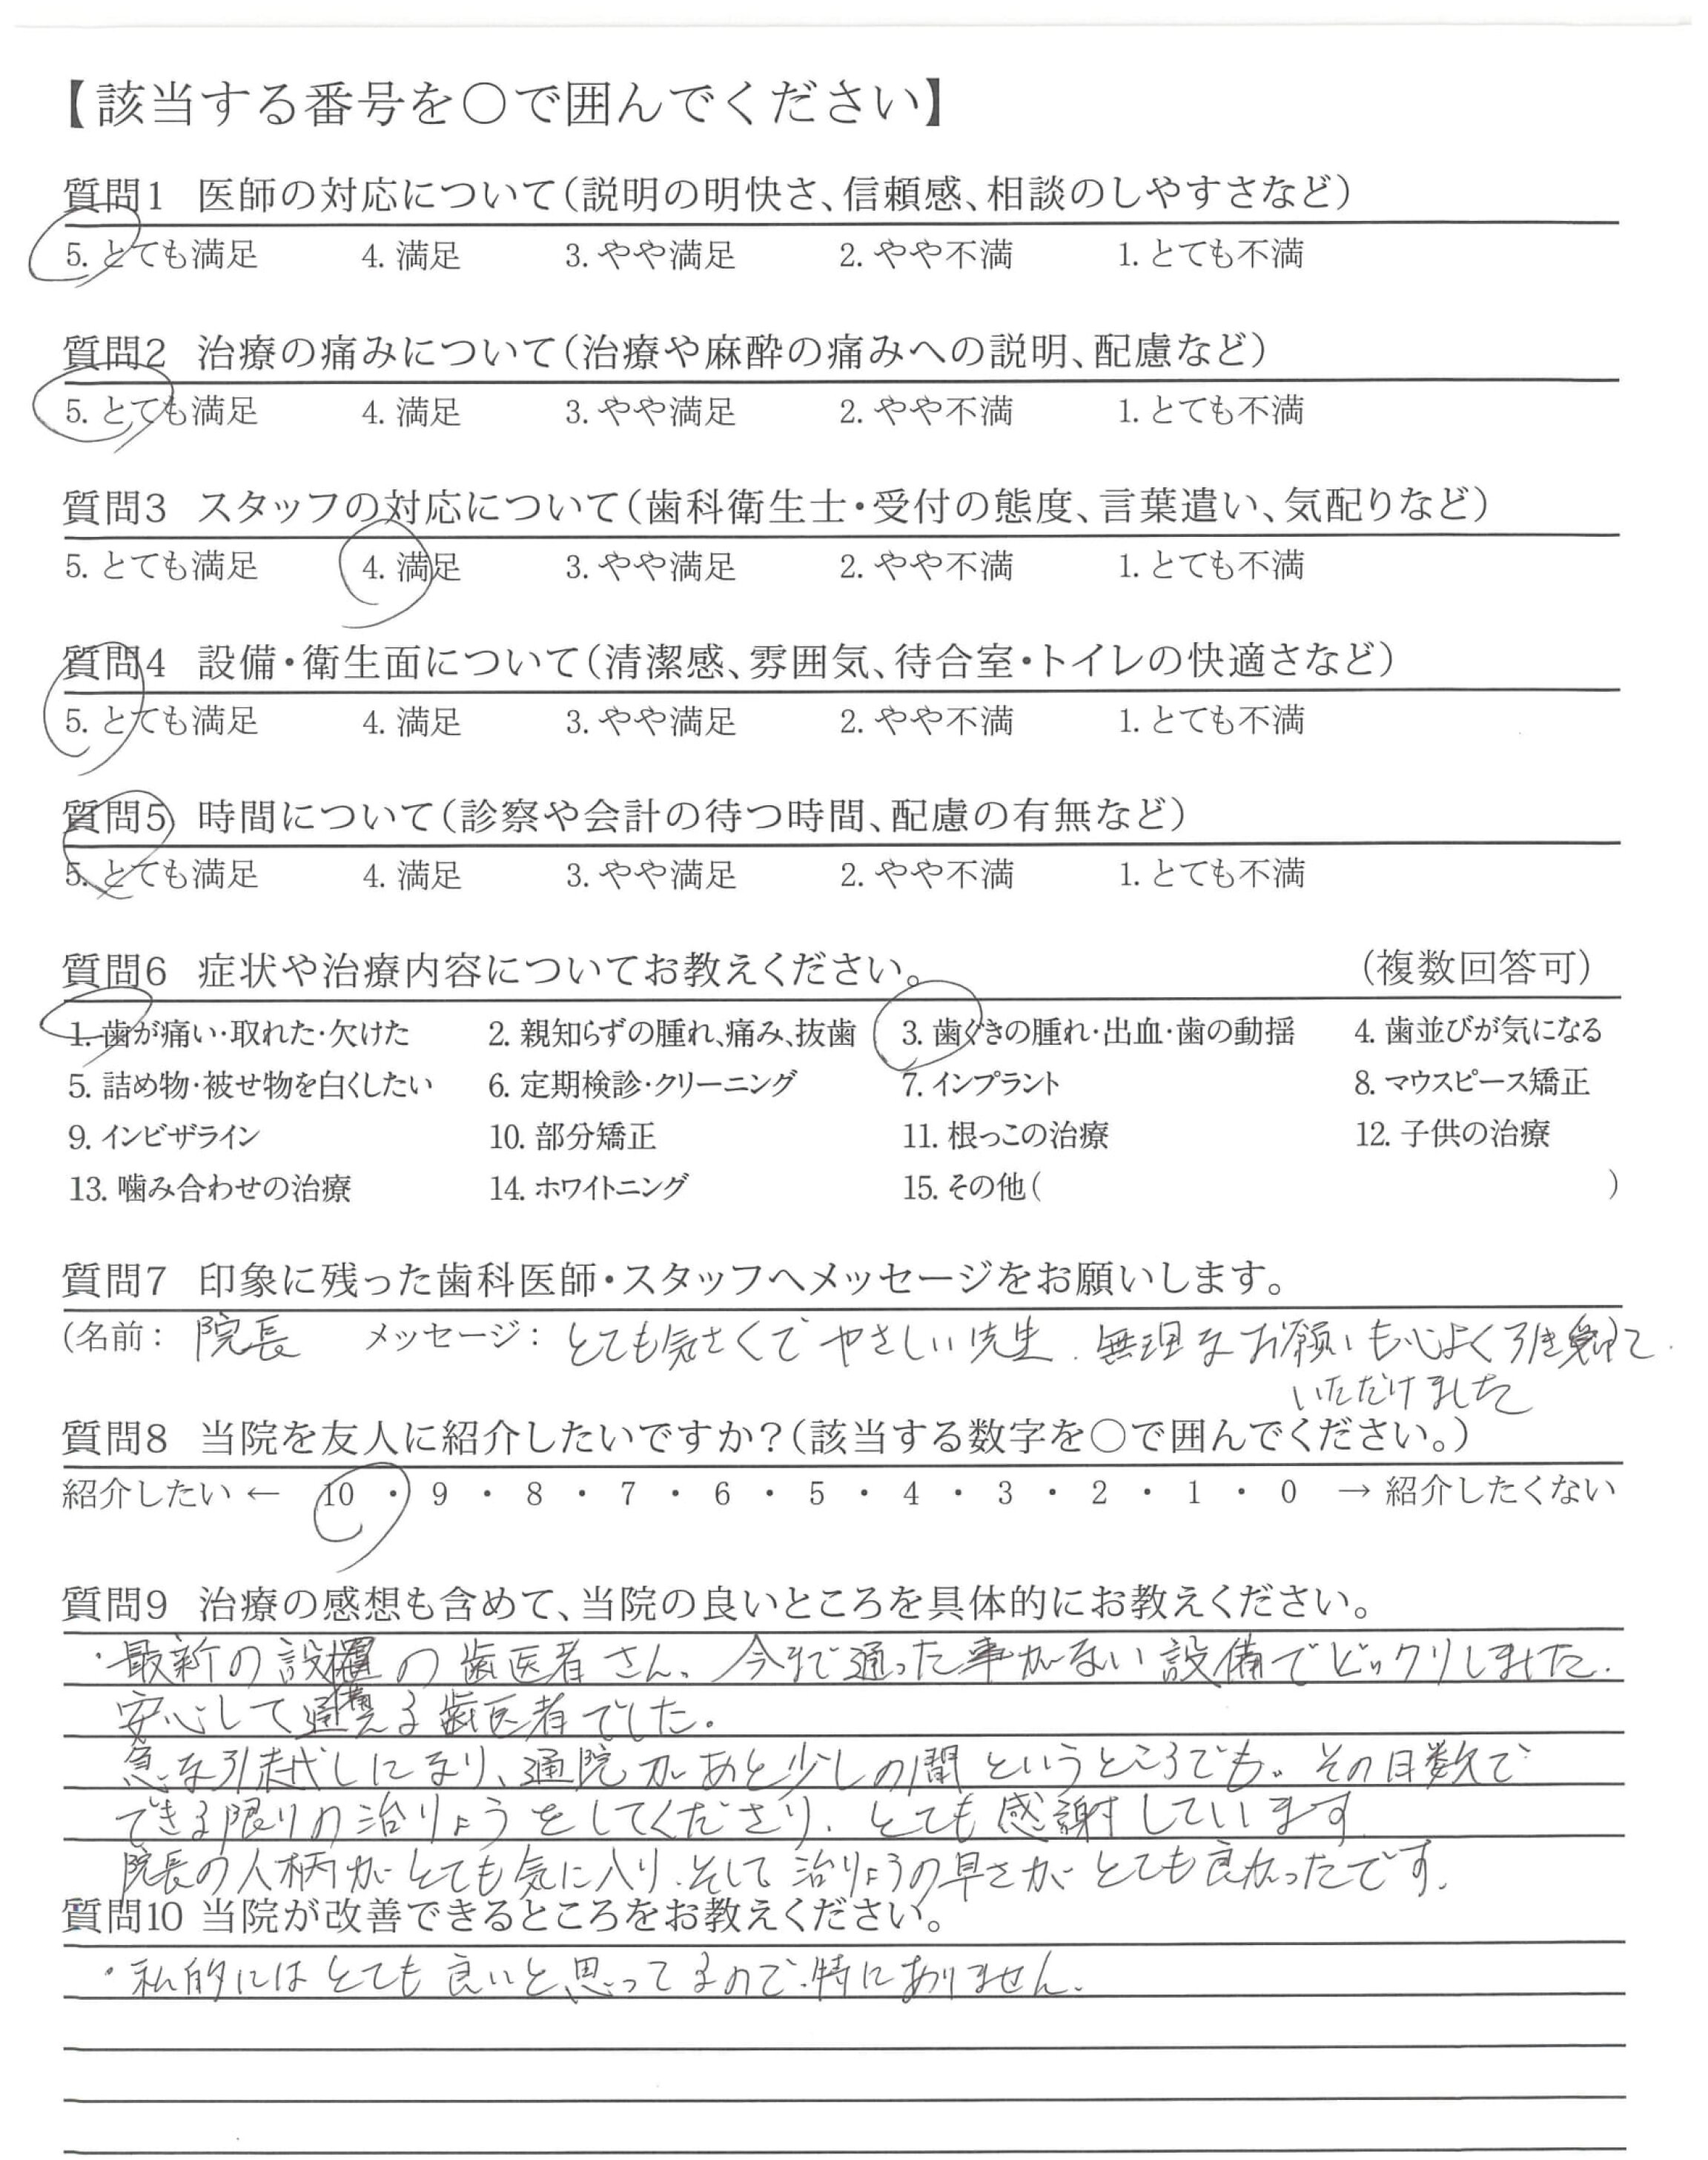 【該当する番号を○で囲んでください】
質問1 医師の対応について(説明の明快さ、信頼感、相談のしやすさなど)
5. とても満足 4. 満足 3. やや満足 2. やや不満 1. とても不満
質問2 治療の痛みについて(治療や麻酔の痛みへの説明、配慮など)
5. とても満足 4. 満足 3. やや満足 2. やや不満 1. とても不満
質問3 スタッフの対応について(歯科衛生士・受付の態度、言葉遣い、気配りなど)
5. とても満足 4. 満足 3. やや満足 2. やや不満 1. とても不満
質問4 設備・衛生面について(清潔感、雰囲気、待合室・トイレの快適さなど)
5. とても満足 4. 満足 3. やや満足 2. やや不満 1. とても不満
質問5 時間について(診察や会計の待つ時間、配慮の有無など)
5. とても満足 4. 満足 3. やや満足 2. やや不満 1. とても不満
質問6 症状や治療内容についてお教えください。 (複数回答可)
1. 歯が痛い・取れた・欠けた 2. 親知らずの腫れ、痛み、抜歯 3. 歯ぐきの腫れ・出血・歯の動揺 4. 歯並びが気になる
5. 詰め物・被せ物を白くしたい 6. 定期検診・クリーニング 7. インプラント 8. マウスピース矯正
9. インビザライン 10. 部分矯正 11. 根っこの治療 12. 子供の治療
13. 噛み合わせの治療 14. ホワイトニング 15. その他( )
質問7 印象に残った歯科医師・スタッフへメッセージをお願いします。
(名前: 院長 メッセージ: とても気さくでやさしい先生. 無理なお願いも心よく引き受けて
いただけました
質問8 当院を友人に紹介したいですか?(該当する数字を○で囲んでください。)
紹介したい ← 10 ・ 9 ・ 8 ・ 7 ・ 6 ・ 5 ・ 4 ・ 3 ・ 2 ・ 1 ・ 0 → 紹介したくない
質問9 治療の感想も含めて、当院の良いところを具体的にお教えください。
・最新の設備の歯医者さん、今まで通った事がない設備でビックリしました.
安心して通える歯医者でした.
急な引越しになり、通院があと少しの間というところでも。その日数で
できる限りの治りょうをしてくださり、とても感謝しています
院長の人柄がとても気に入り.そして治りょうの早さがとても良かったです.
質問10 当院が改善できるところをお教えください。
・私的にはとても良いと思ってるので.特にありません.